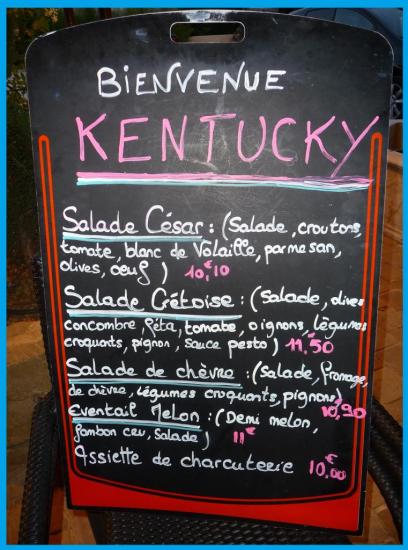 BIENVENUE
KENTUCKY
Salade César : (Salade, croutons,
tomate, blanc de Volaille, parmesan,
olives, oeuf) 10,€10
Salade Crétoise : (Salade, olives
concombre, féta, tomate, oignons, légumes
croquants, pignon, sauce pesto) 11,€50
Salade de chèvre : (Salade, fromage,
de chèvre, légumes croquants, pignons) 10,90
Eventail Melon : (Demi melon,
Jambon cru, Salade) 11€
Assiette de charcuterie 10,€00